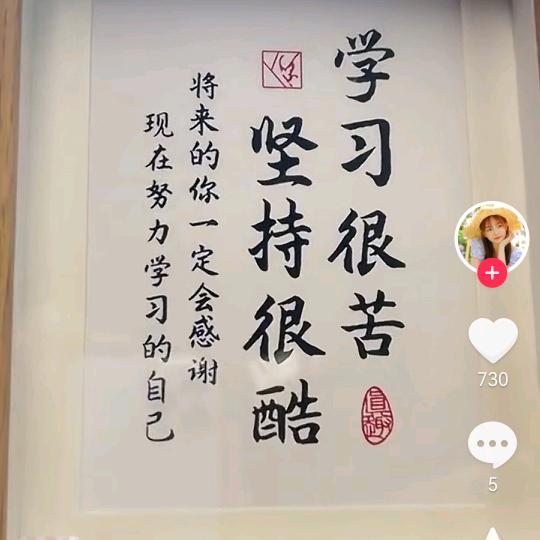 学习很苦
坚持很酷
将来的你一定会感谢
现在努力学习的自己
730
5